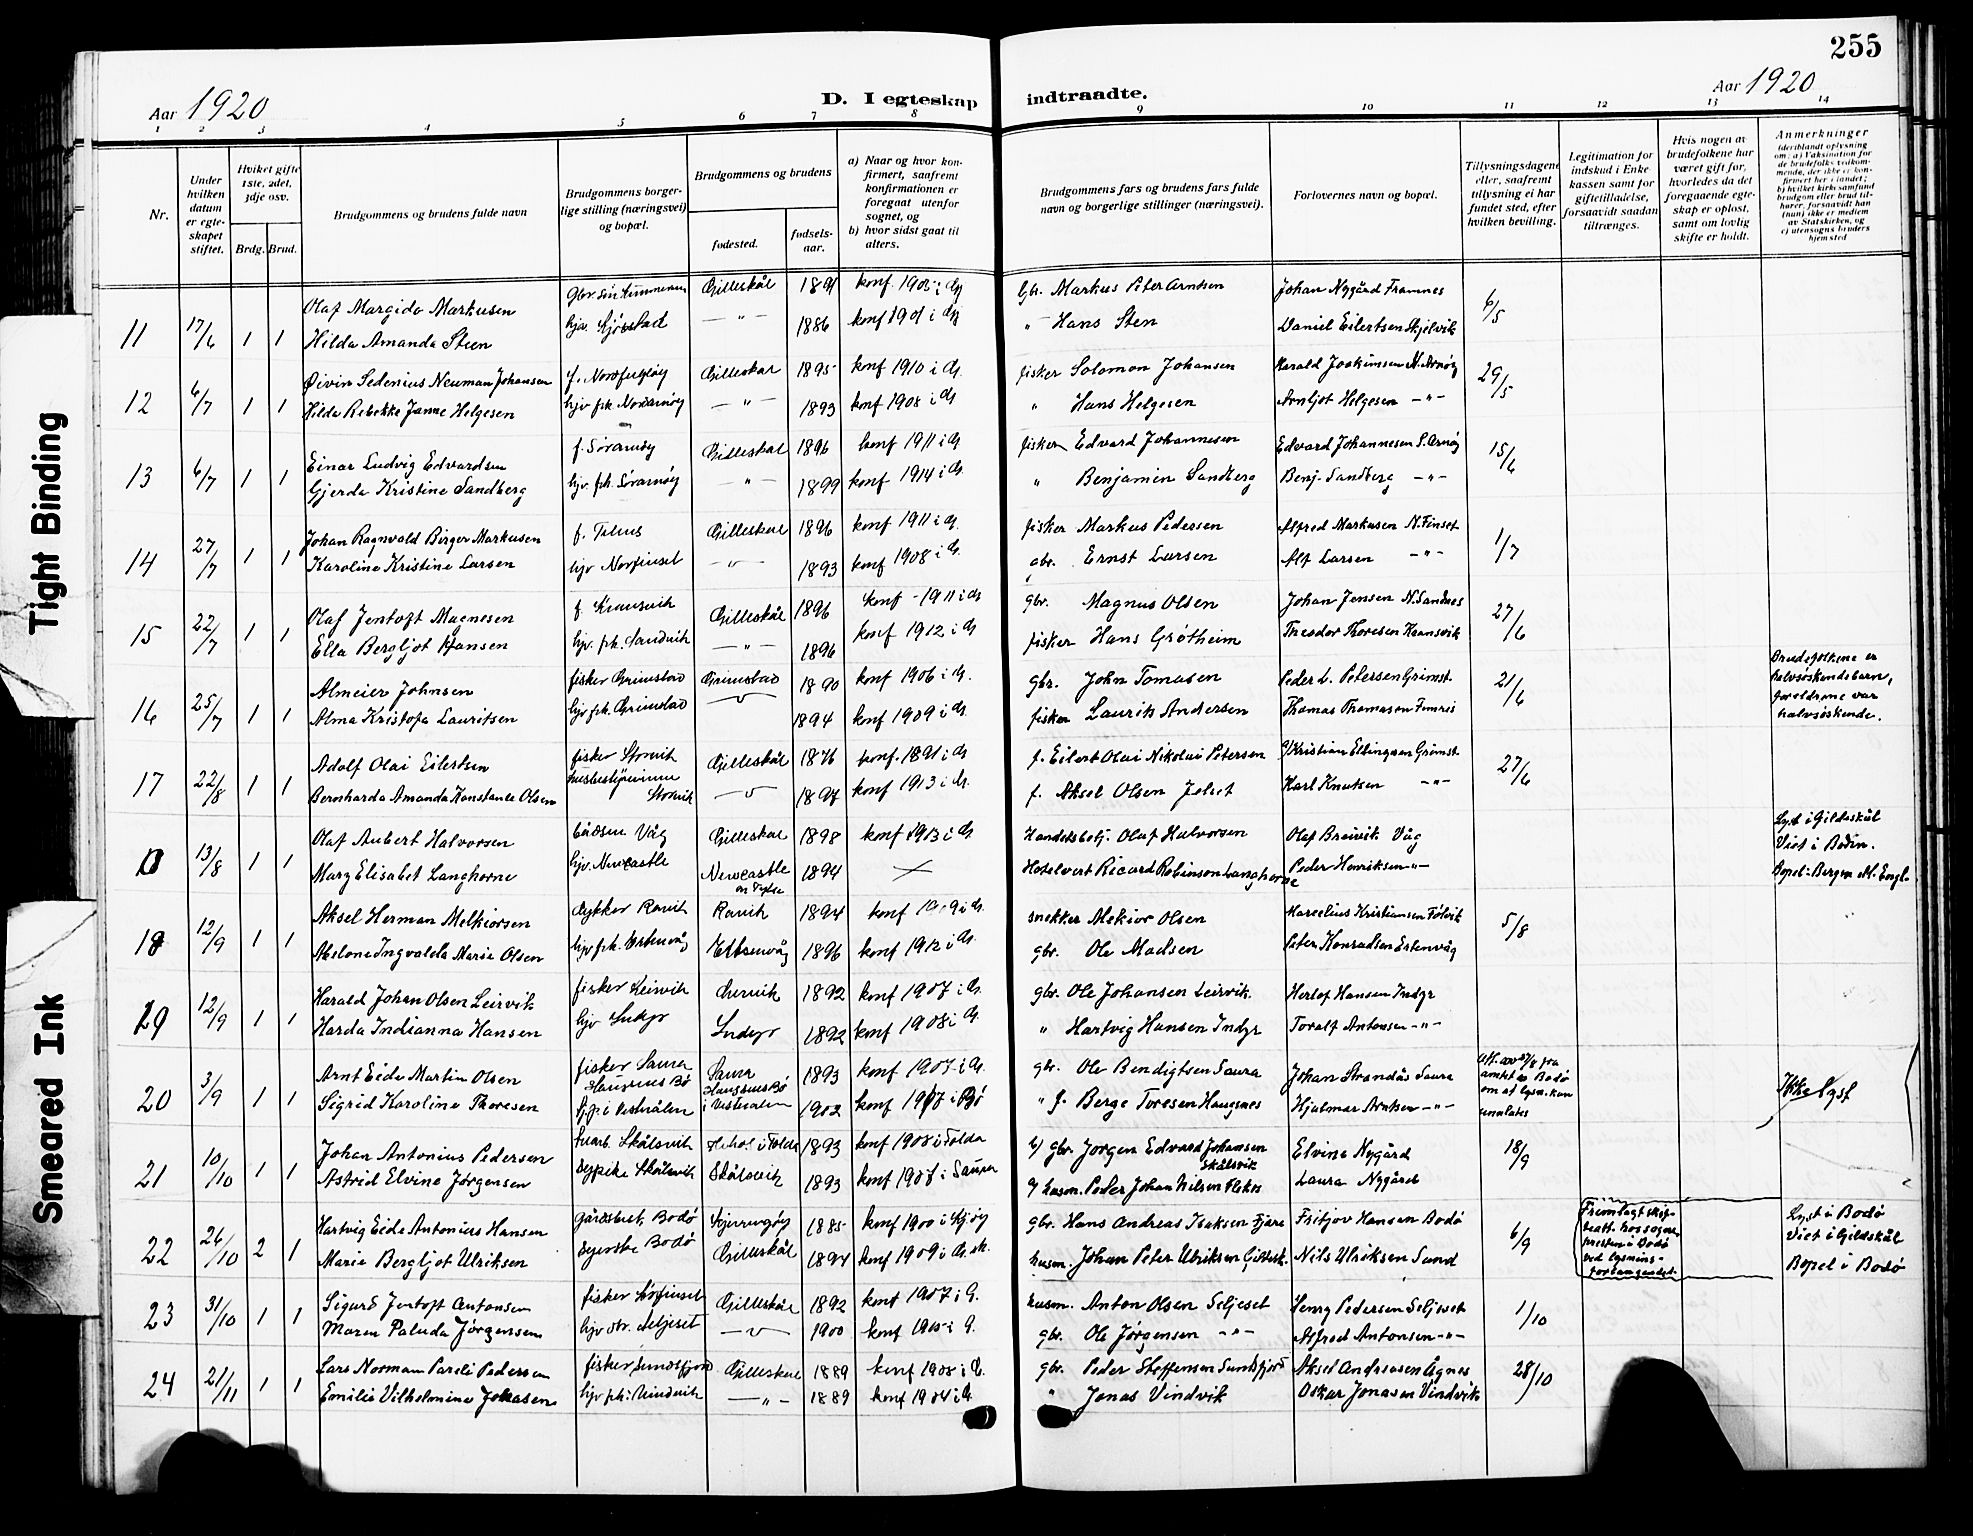 255
Aar 1920
D. I egteskap indtraadte.
Aar 1920
1 2 3 4 5 6 7 8 9 10 11 12 13 14
Nr.
Under hvilken datum er egteskapet stiftet.
Hvilket gifte 1ste, 2det, 3dje osv.
Brdg. Brud.
Brudgommens og brudens fulde navn
Brudgommens borgerlige stilling (næringsvei) og bopæl.
Brudgommens og brudens
fødested.
fødselsaar.
a) Naar og hvor konfirmert, saafremt konfirmationen er foregaat utenfor sognet, og
b) hvor sidst gaat til alters.
Brudgommens fars og brudens fars fulde navn og borgerlige stillinger (næringsvei).
Forlovernes navn og bopæl.
Tillysningsdagene eller, saafremt tillysning ei har fundet sted, efter hvilken bevilling.
Legitimation for indskud i Enkekassen samt for giftetilladelse, forsaavidt saadan tiltrænges.
Hvis nogen av brudefolkene har været gift før, hvorledes da det foregaaende egteskap er opløst, samt om lovlig skifte er holdt.
Anmerkninger (deriblandt oplysning om: a) Vaksination for de brudefolks vedkommende, der ikke er konfirmert her i landet; b) hvilket kirkesamfund brudgom eller brud tilhører, forsaavidt han (hun) ikke er medlem av Statskirken, og c) utensogns bruders hjemsted
11 17/6 1 1 Olaf Margido Markusen Gilleskål 1891 konf. 1905 i G Gbr. Markus Peter Arntsen Johan Nygård Framnes 6/5
Hilda Amanda Steen — " — 1886 konf 1901 i G " Hans Sten Daniel Eilertsen Skjelvik
12 6/7 1 1 Øivin Sedenius Neuman Johansen f. Nordfugløy Gilleskål 1895 konf 1910 i G. fisker Solomon Johansen Harald Joakimsen N. Arnøy 29/5
Hilda Rebekke Janne Helgesen hjv. frk. Nordarnøy — " — 1893 konf 1908 i G " Hans Helgesen Arnljot Helgesen — " —
13 6/7 1 1 Einar Ludvig Edvardsen f. Sørarnøy Gilleskål 1896 konf 1911 i G fisker Edvard Johannesen Edvard Johannesen S. Arnøy 15/6
Gjerda Kristine Sandberg hjv. frk. Sørarnøy — " — 1899 konf 1914 i G. " Benjamin Sandberg Benj. Sandberg — " —
14 27/7 1 1 Johan Ragnvald Birger Markusen Gilleskål 1896 konf 1911 i G. fisker Markus Pedersen Alfred Markusen N. Finset 1/7
Karoline Kristine Larsen hjv Norfinset — " — 1893 konf 1908 i G. gbr. Ernst Larsen Alf Larsen — " —
15 22/7 1 1 Olaf Jentoft Magnesen Gilleskål 1896 konf 1911 i G gbr. Magnus Olsen Johan Jensen N. Sandnes 27/6
Ella Bergljot Hansen hjv. frk. Sandvik — " — 1896 konf 1912 i G fisker Hans Grøtheim Theodor Thoresen Kransvik
16 25/7 1 1 Almeier Johnsen fisker Grimstad Grimstad 1890 konf 1906 i G. gbr. John Tomasen Peder L. Petersen Grimst. 21/6 Brudefolkene er halvsøskendebarn, forældrene var halvsøskende.
Alma Kristofa Lauritsen hjv frk. Grimstad — " — 1894 konf 1909 i G. fisker Laurits Andersen Thomas Thomassen
17 22/8 1 1 Adolf Olai Eilertsen fisker Storvik Gilleskål 1876 konf. 1891 i G f. Eilert Olai Nikolai Petersen Kristian Ellingsen Grimst. 27/6
Bernharda Amanda Konstanse Olsen husbestyrerinne Storvik — " — 1897 konf 1913 i G. f. Aksel Olsen Karl Knutsen — " —
13/8 1 1 Olaf Aubert Halvorsen Våg Gilleskål 1898 konf 1913 i G Handelsbetj. Olaf Halvorsen Olaf Breivik Våg Lyst i Gildeskål Viet i Bodin.
Mary Elisabet Langhorne hjv. Newcastle Newcastle on Tyne 1894 Hotelvert Ricard Robinson Langhorne Peder Henriksen — " —
18 12/9 1 1 Aksel Herman Melkiorsen Rønvik 1894 konf 1909 i G. snekker Melkior Olsen Marcelius Kristiansen 5/8
Ingvalda Marie Olsen 1896 konf 1912 i G. gbr. Ole Madsen Peter Konradsen
29 12/9 1 1 Harald Johan Olsen Leirvik fisker Leirvik Leirvik 1892 konf 1907 i G. gbr. Ole Johansen Leirvik. Herlof Hansen Indyr
Harda Indianna Hansen hjv Indyr Indyr 1892 konf 1908 i G. " Hartvig Hansen Indyr Toralf Antonsen — " —
20 3/9 1 1 Arnt Eide Martin Olsen fisker Saura Saura 1893 konf 1907 i G. gbr. Ole Bendigtsen Saura Johan Strandås Saura Ikke lyst
Sigrid Karoline Thoresen Haugsnes Bø i Vesterålen 1902 konf 1917 i Bø " f. Berge Toresen Haugsnes Hjalmar Arntsen — " —
21 10/10 1 1 Johan Antonius Pedersen Skålsvik 1893 konf 1908 i Folda b/ gbr. Jørgen Edvard Johansen Skålsvik Elvine Nygård 18/9
Astrid Elvine Jørgensen Skålsvik Skålsvik 1893 konf 1907 i Saura g/ husm. Peder Johan Nilsen Laura Nygård
22 26/10 2 1 Hartvig Eide Antonius Hansen Bodø Kjerringøy 1885 konf 1900 i Kjøy gbr. Hans Andreas Isaksen Fjære Fritjov Hansen Bodø 6/9 Lyst i Bodø Viet i Gildeskål Bopel i Bodø
Marie Bergljot Ulriksen Bodø Gilleskål 1894 konf 1909 i G. husm. Johan Peter Ulriksen Gildesk. Nils Ulriksen Sund
23 31/10 1 1 Sigurd Jentoft Antonsen fisker Gilleskål 1892 konf 1907 i G. husm. Anton Olsen Seljeset Henry Pedersen Seljeset 1/10
Maren Paluda Jørgensen hjv Seljeset — " — 1900 konf 1915 i G. gbr. Ole Jørgensen — " — Alfred Antonsen — " —
24 21/11 1 1 Lars Norman Pareli Pedersen fisker Sundsfjord Gilleskål 1889 konf 1905 i G. gbr. Peder Steffensen Sundsfjord Aksel Andreasen Ågnes 28/10
Emilie Vilhelmine Jonasen hjv frk. Vindvik — " — 1889 konf 1904 i G " Jonas Vindvik Oskar Jonasen Vindvik
Tight Binding
Smeared Ink